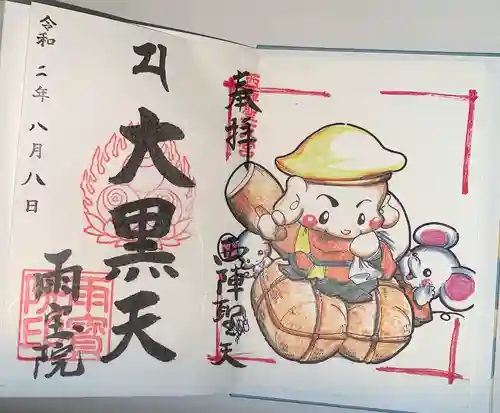 奉拝
西陣聖天
大黒天
雨宝院
令和二年八月八日
雨宝院印